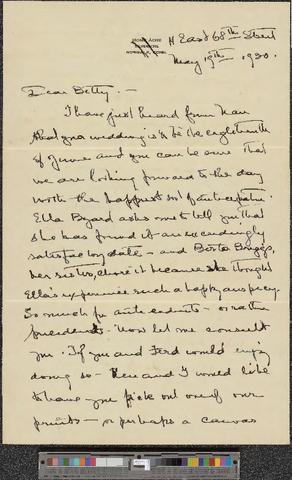 East 68th Street
May 19th 1930.
Dear Betty. —
I have just heard from Nan
that your wedding is to be the eighteenth
of June and you can be sure that
we are looking forward to the day
with the happiest sort of anticipation.
Ella Byard asks me to tell you that
she has found it an exceedingly
satisfactory date — and Berta Briggs,
her sister, chose it because she thought
Ella's experience such a happy augury.
So much for antecedents — or rather
precedents. Now let me consult
you. If you and Ferd would enjoy
doing so — and I would like
to have you pick out one of our
prints — or perhaps a canvas